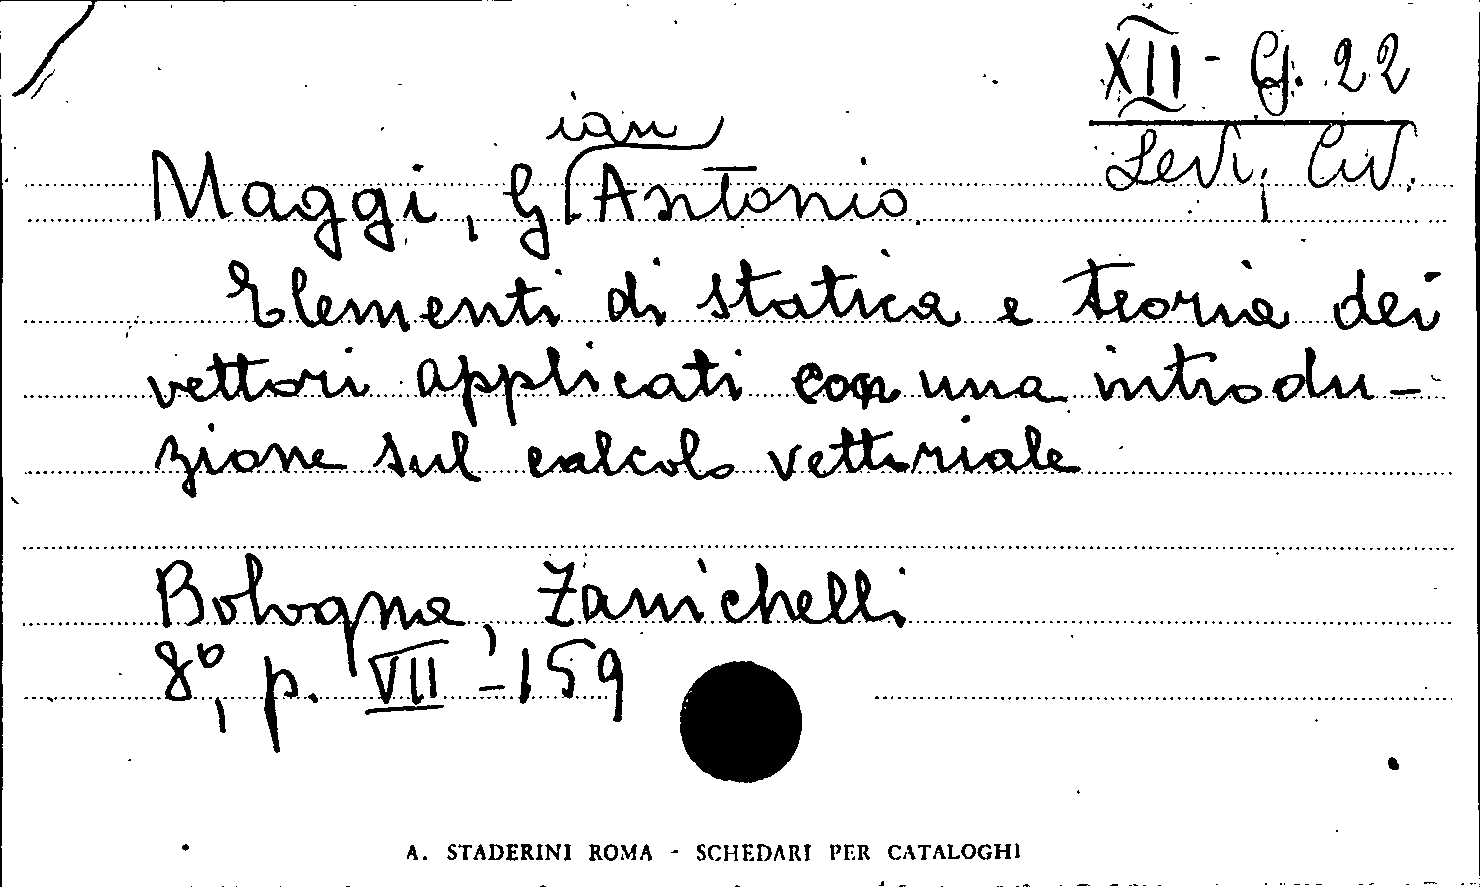 XII - G. 22
Levi, Civ.
Maggi, Gian Antonio
Elementi di statica e teoria dei
vettori applicati con una introdu-
zione sul calcolo vettoriale
Bologna, Zanichelli
8º, p. VII - 159
A. STADERINI ROMA - SCHEDARI PER CATALOGHI